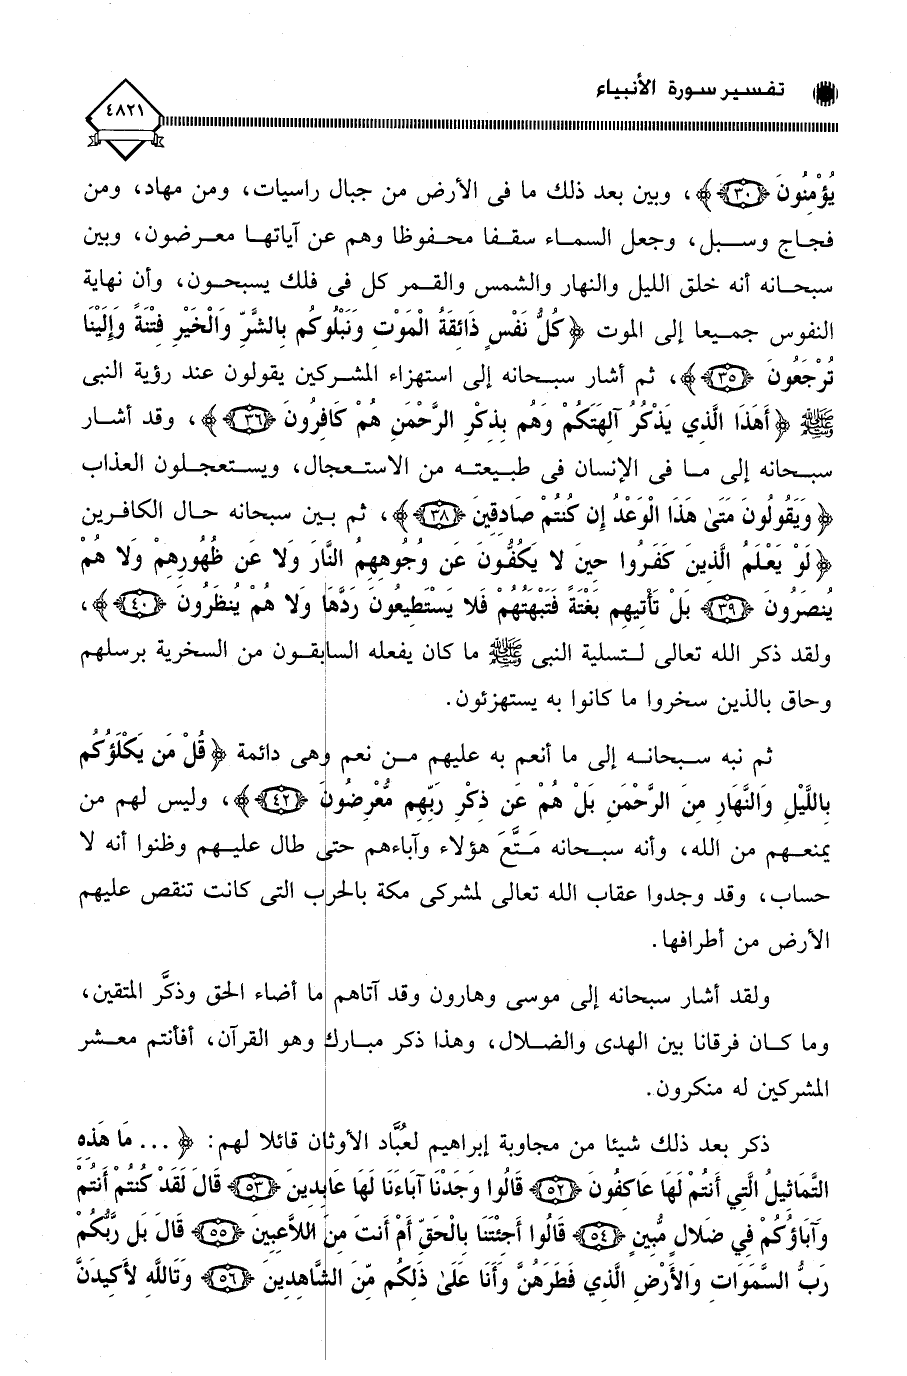 تفسير سورة الأنبياء
٤٨٢١
يُؤْمِنُونَ ﴿٣٠﴾ ﴾، وبين بعد ذلك ما فى الأرض من جبال راسيات، ومن مهاد، ومن
فجاج وسبل، وجعل السماء سقفا محفوظا وهم عن آياتها معرضون، وبين
سبحانه أنه خلق الليل والنهار والشمس والقمر كل فى فلك يسبحون، وأن نهاية
النفوس جميعا إلى الموت ﴿ كُلُّ نَفْسٍ ذَائِقَةُ الْمَوْتِ وَنَبْلُوكُم بِالشَّرِّ وَالْخَيْرِ فِتْنَةً وَإِلَيْنَا
تُرْجَعُونَ ﴿٣٥﴾ ﴾، ثم أشار سبحانه إلى استهزاء المشركين يقولون عند رؤية النبى
ﷺ ﴿ أَهَذَا الَّذِي يَذْكُرُ آلِهَتَكُمْ وَهُم بِذِكْرِ الرَّحْمَنِ هُمْ كَافِرُونَ ﴿٣٦﴾ ﴾، وقد أشار
سبحانه إلى ما فى الإنسان فى طبيعته من الاستعجال، ويستعجلون العذاب
﴿ وَيَقُولُونَ مَتَىٰ هَذَا الْوَعْدُ إِن كُنتُمْ صَادِقِينَ ﴿٣٨﴾ ﴾، ثم بين سبحانه حال الكافرين
﴿ لَوْ يَعْلَمُ الَّذِينَ كَفَرُوا حِينَ لا يَكُفُّونَ عَن وُجُوهِهِمُ النَّارَ وَلا عَن ظُهُورِهِمْ وَلا هُمْ
يُنصَرُونَ ﴿٣٩﴾ بَلْ تَأْتِيهِم بَغْتَةً فَتَبْهَتُهُمْ فَلا يَسْتَطِيعُونَ رَدَّهَا ولا هُمْ يُنظَرُونَ ﴿٤٠﴾ ﴾،
ولقد ذكر الله تعالى لتسلية النبى ﷺ ما كان يفعله السابقون من السخرية برسلهم
وحاق بالذين سخروا ما كانوا به يستهزئون.
ثم نبه سبحانه إلى ما أنعم به عليهم من نعم وهى دائمة ﴿ قُلْ مَن يَكْلَؤُكُم
بِاللَّيْلِ وَالنَّهَارِ مِنَ الرَّحْمَنِ بَلْ هُمْ عَن ذِكْرِ رَبِّهِم مُّعْرِضُونَ ﴿٤٢﴾ ﴾، وليس لهم من
يمنعهم من الله، وأنه سبحانه مَتَّعَ هؤلاء وآباءهم حتى طال عليهم وظنوا أنه لا
حساب، وقد وجدوا عقاب الله تعالى لمشركى مكة بالحرب التى كانت تنقص عليهم
الأرض من أطرافها.
ولقد أشار سبحانه إلى موسى وهارون وقد آتاهم ما أضاء الحق وذكَّر المتقين،
وما كان فرقانا بين الهدى والضلال، وهذا ذكر مبارك وهو القرآن، أفأنتم معشر
المشركين له منكرون.
ذكر بعد ذلك شيئا من مجاوبة إبراهيم لعُبَّاد الأوثان قائلا لهم: ﴿ ... مَا هَذِهِ
التَّمَاثِيلُ الَّتِي أَنتُمْ لَهَا عَاكِفُونَ ﴿٥٢﴾ قَالُوا وَجَدْنَا آبَاءَنَا لَهَا عَابِدِينَ ﴿٥٣﴾ قَالَ لَقَدْ كُنتُمْ أَنتُمْ
وَآبَاؤُكُمْ فِي ضَلالٍ مُّبِينٍ ﴿٥٤﴾ قَالُوا أَجِئْتَنَا بِالْحَقِّ أَمْ أَنتَ مِنَ اللاَّعِبِينَ ﴿٥٥﴾ قَالَ بَل رَّبُّكُمْ
رَبُّ السَّمَوَاتِ وَالأَرْضِ الَّذِي فَطَرَهُنَّ وَأَنَا عَلَىٰ ذَلِكُم مِّنَ الشَّاهِدِينَ ﴿٥٦﴾ وَتَاللَّهِ لأَكِيدَنَّ